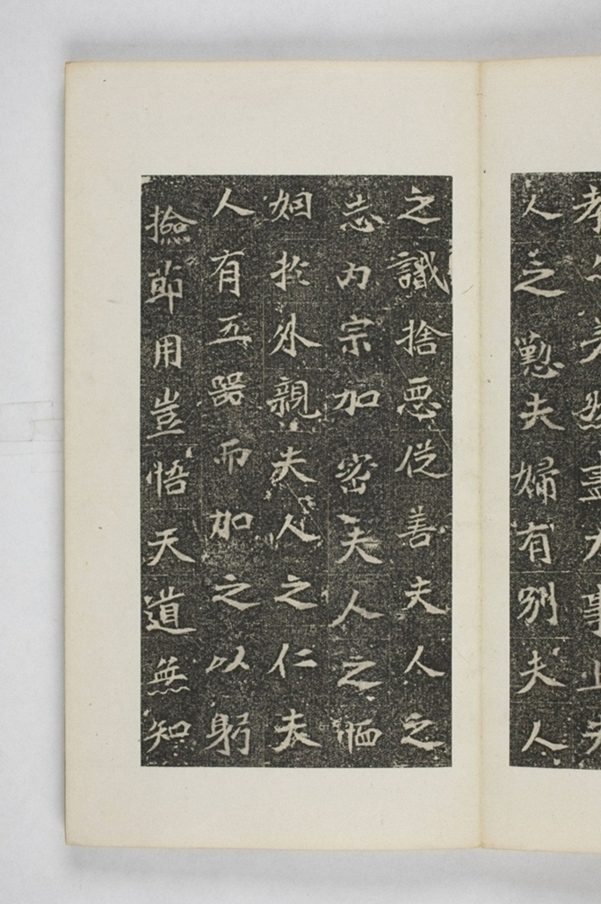 孝然盡事夫
人之懃夫婦有別夫人
之識捨惡從善夫人之
志內宗加密夫人之恤
姻於外親夫人之仁夫
人有五器而加之以躬
撿節用豈悟天道無知